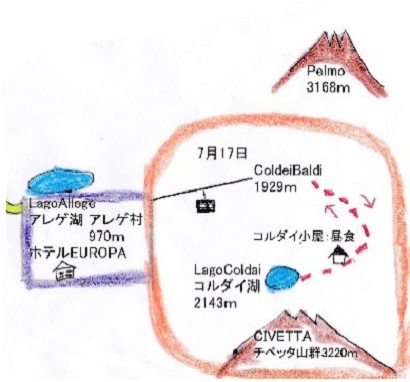 Pelmo
3168m
7月17日
ColdeiBaldi
1929m
LagoAllege
アレゲ湖 アレゲ村
970m
ホテルEUROPA
コルダイ小屋:昼食
LagoColdai
コルダイ湖
2143m
CIVETTA
チベッタ山群3220m